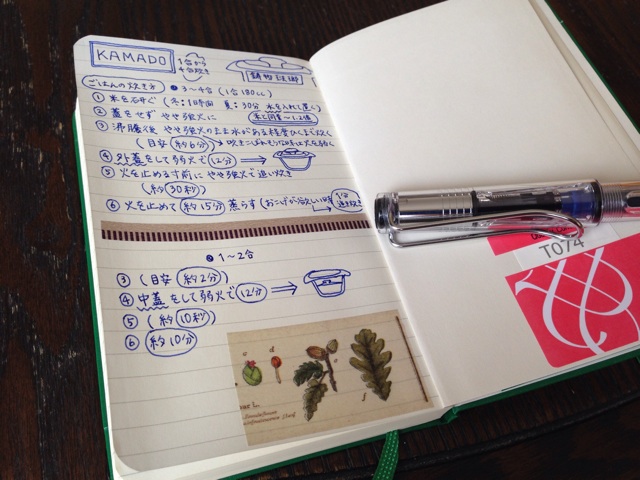 KAMADO
1合から
4合炊き
鋳物琺瑯
ごはんの炊き方 ❶ 3〜4合 (1合180cc)
① 米を研ぐ (冬:1時間 夏:30分 水を入れて置く)
② 蓋をせず やや強火に 米と同量〜1.2倍
③ 沸騰後 やや強火のまま水がある程度ひくまで炊く
(目安 約6分) 吹きこぼれそうな時は火を弱く
④ 外蓋をして弱火で 12分 →
⑤ 火を止める寸前に やや強火で追い炊き
(約30秒)
⑥ 火を止めて 約15分 蒸らす (おこげが欲しい時
❷ 1〜2合
③ (目安 約2分)
④ 中蓋をして弱火で 12分 →
⑤ (約10秒)
⑥ 約10分
d
f
T074